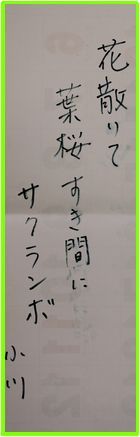 花散りて
葉桜すき間に
サクランボ
小川